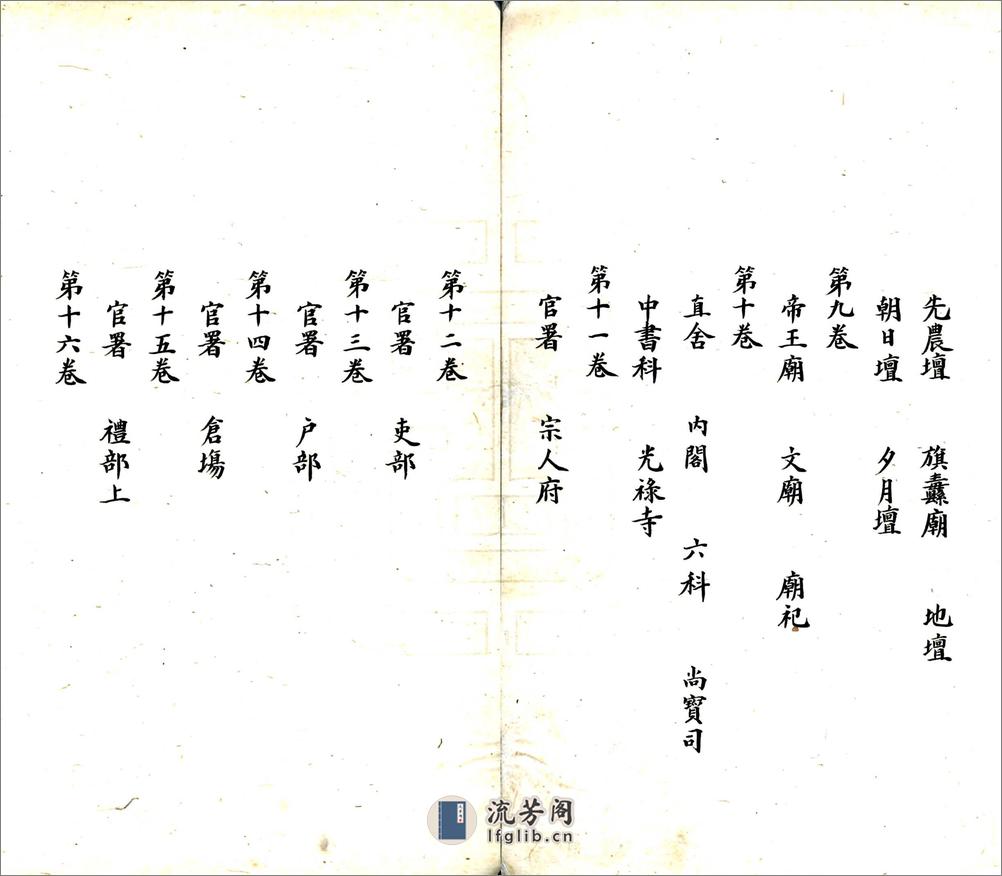 先農壇　旗纛廟　地壇
朝日壇　夕月壇
第九卷
帝王廟　文廟　廟祀
第十卷
直舍　內閣　六科　尚寶司
中書科　光祿寺
第十一卷
官署　宗人府
第十二卷
官署　吏部
第十三卷
官署　户部
第十四卷
官署　倉塲
第十五卷
官署　禮部上
第十六卷
流芳阁
lfglib.cn